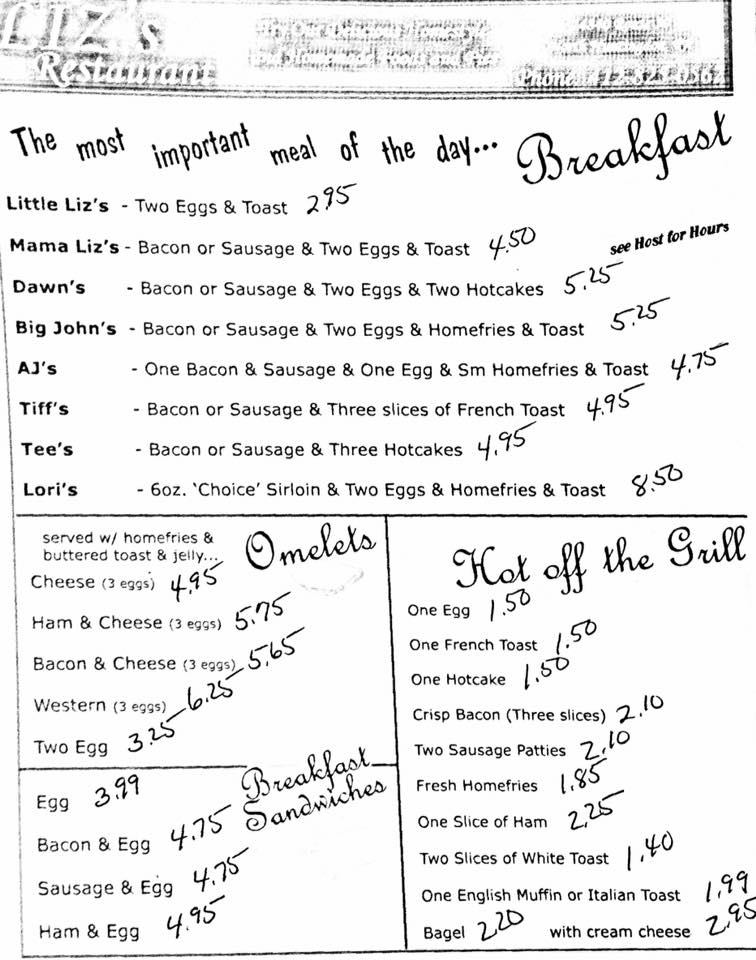 LIZ's
Restaurant
The most important meal of the day... Breakfast
Little Liz's - Two Eggs & Toast 2.95
Mama Liz's - Bacon or Sausage & Two Eggs & Toast 4.50
see Host for Hours
Dawn's - Bacon or Sausage & Two Eggs & Two Hotcakes 5.25
Big John's - Bacon or Sausage & Two Eggs & Homefries & Toast 5.25
AJ's - One Bacon & Sausage & One Egg & Sm Homefries & Toast 4.75
Tiff's - Bacon or Sausage & Three slices of French Toast 4.95
Tee's - Bacon or Sausage & Three Hotcakes 4.95
Lori's - 6oz. 'Choice' Sirloin & Two Eggs & Homefries & Toast 8.50
served w/ homefries &
buttered toast & jelly...
Omelets
Cheese (3 eggs) 4.95
Ham & Cheese (3 eggs) 5.75
Bacon & Cheese (3 eggs) 5.65
Western (3 eggs) 6.25
Two Egg 3.25
Breakfast
Sandwiches
Egg 3.99
Bacon & Egg 4.75
Sausage & Egg 4.75
Ham & Egg 4.95
Hot off the Grill
One Egg 1.50
One French Toast 1.50
One Hotcake 1.50
Crisp Bacon (Three slices) 2.10
Two Sausage Patties 2.10
Fresh Homefries 1.85
One Slice of Ham 2.25
Two Slices of White Toast 1.40
One English Muffin or Italian Toast 1.99
Bagel 2.20 with cream cheese 2.95